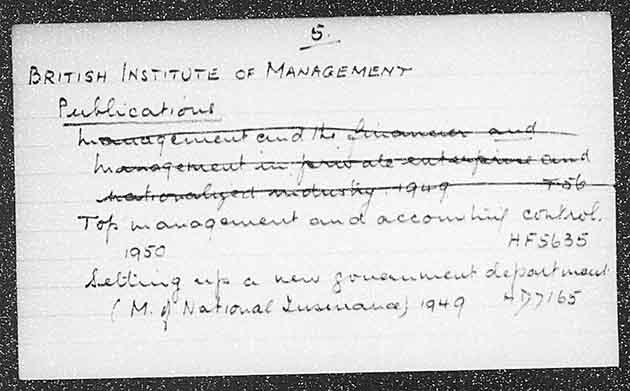 5.
BRITISH INSTITUTE OF MANAGEMENT
Publications
Management and the financier and
management in private enterprise and
nationalized industry. 1949 T56
Top management and accounting control.
1950 HF5635
Setting up a new government department
(M. of National Insurance) 1949 HD7165